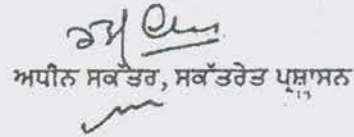 ਅਧੀਨ ਸਕੱਤਰ, ਸਕੱਤਰੇਤ ਪ੍ਰਸ਼ਾਸਨ